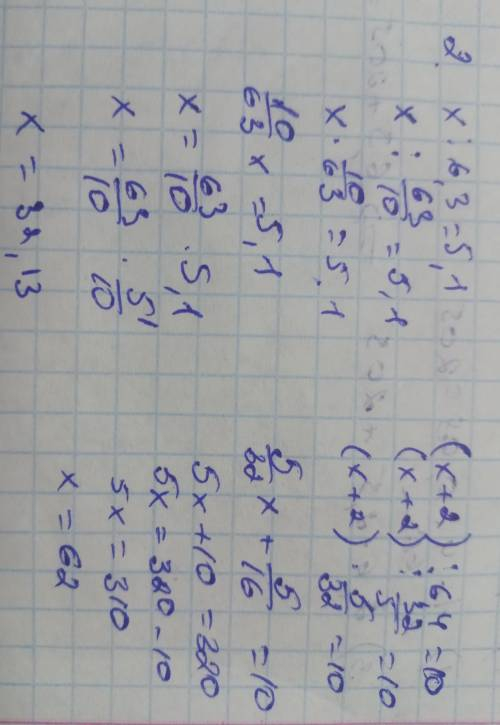 2. x : 6,3 = 5,1
x : 63/10 = 5,1
x · 10/63 = 5,1
10/63 x = 5,1
x = 63/10 · 5,1
x = 63/10 · 51/10
x = 32,13
(x+2) : 6,4 = 10
(x+2) : 32/5 = 10
(x+2) · 5/32 = 10
5/32 x + 5/16 = 10
5x + 10 = 320
5x = 320 - 10
5x = 310
x = 62